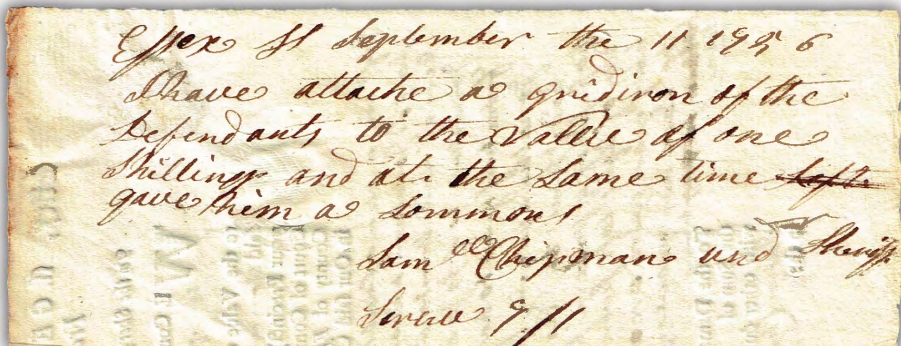 Essex ss September the 11 1756
I have attache a gridiron of the
Defendants to the Vallue of one
Shilling and at the Same time left
gave him a Sommons
Sam ll Chipman und Sheriff
Servce 9/11